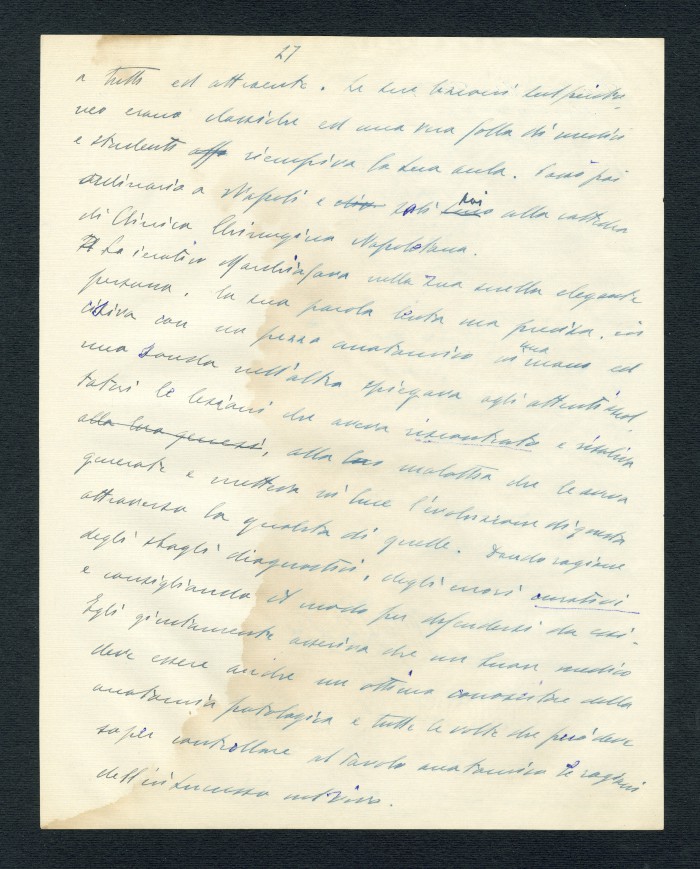 27
a tutti ed attraente. Le sue lezioni sul
neo erano classiche ed una vera folla di medici
e studenti riempiva la sua aula. Passò poi
ordinario a Napoli e salì poi alla cattedra
di Clinica Chirurgica Napoletana.
Lo Marchiafava nella sua snella elegante
persona, la sua parola lenta ma precisa, in
cisiva con un pezzo anatomico in una mano ed
una sonda nell'altra spiegava agli attenti ascol
tatori le lezioni che aveva riscontrato e risaliva
alla loro genesi, alla loro malattia che le aveva
generate e metteva in luce l'evoluzione di questa
attraverso la qualità di quelle. Dando ragione
degli sbagli diagnostici, degli errori curativi
e consigliando il modo per difendersi da essi.
Egli giustamente asseriva che un buon medico
deve essere anche un ottimo conoscitore della
anatomia patologica e tutte le volte che può deve
saper controllare al tavolo anatomico le ragioni
dell'insuccesso